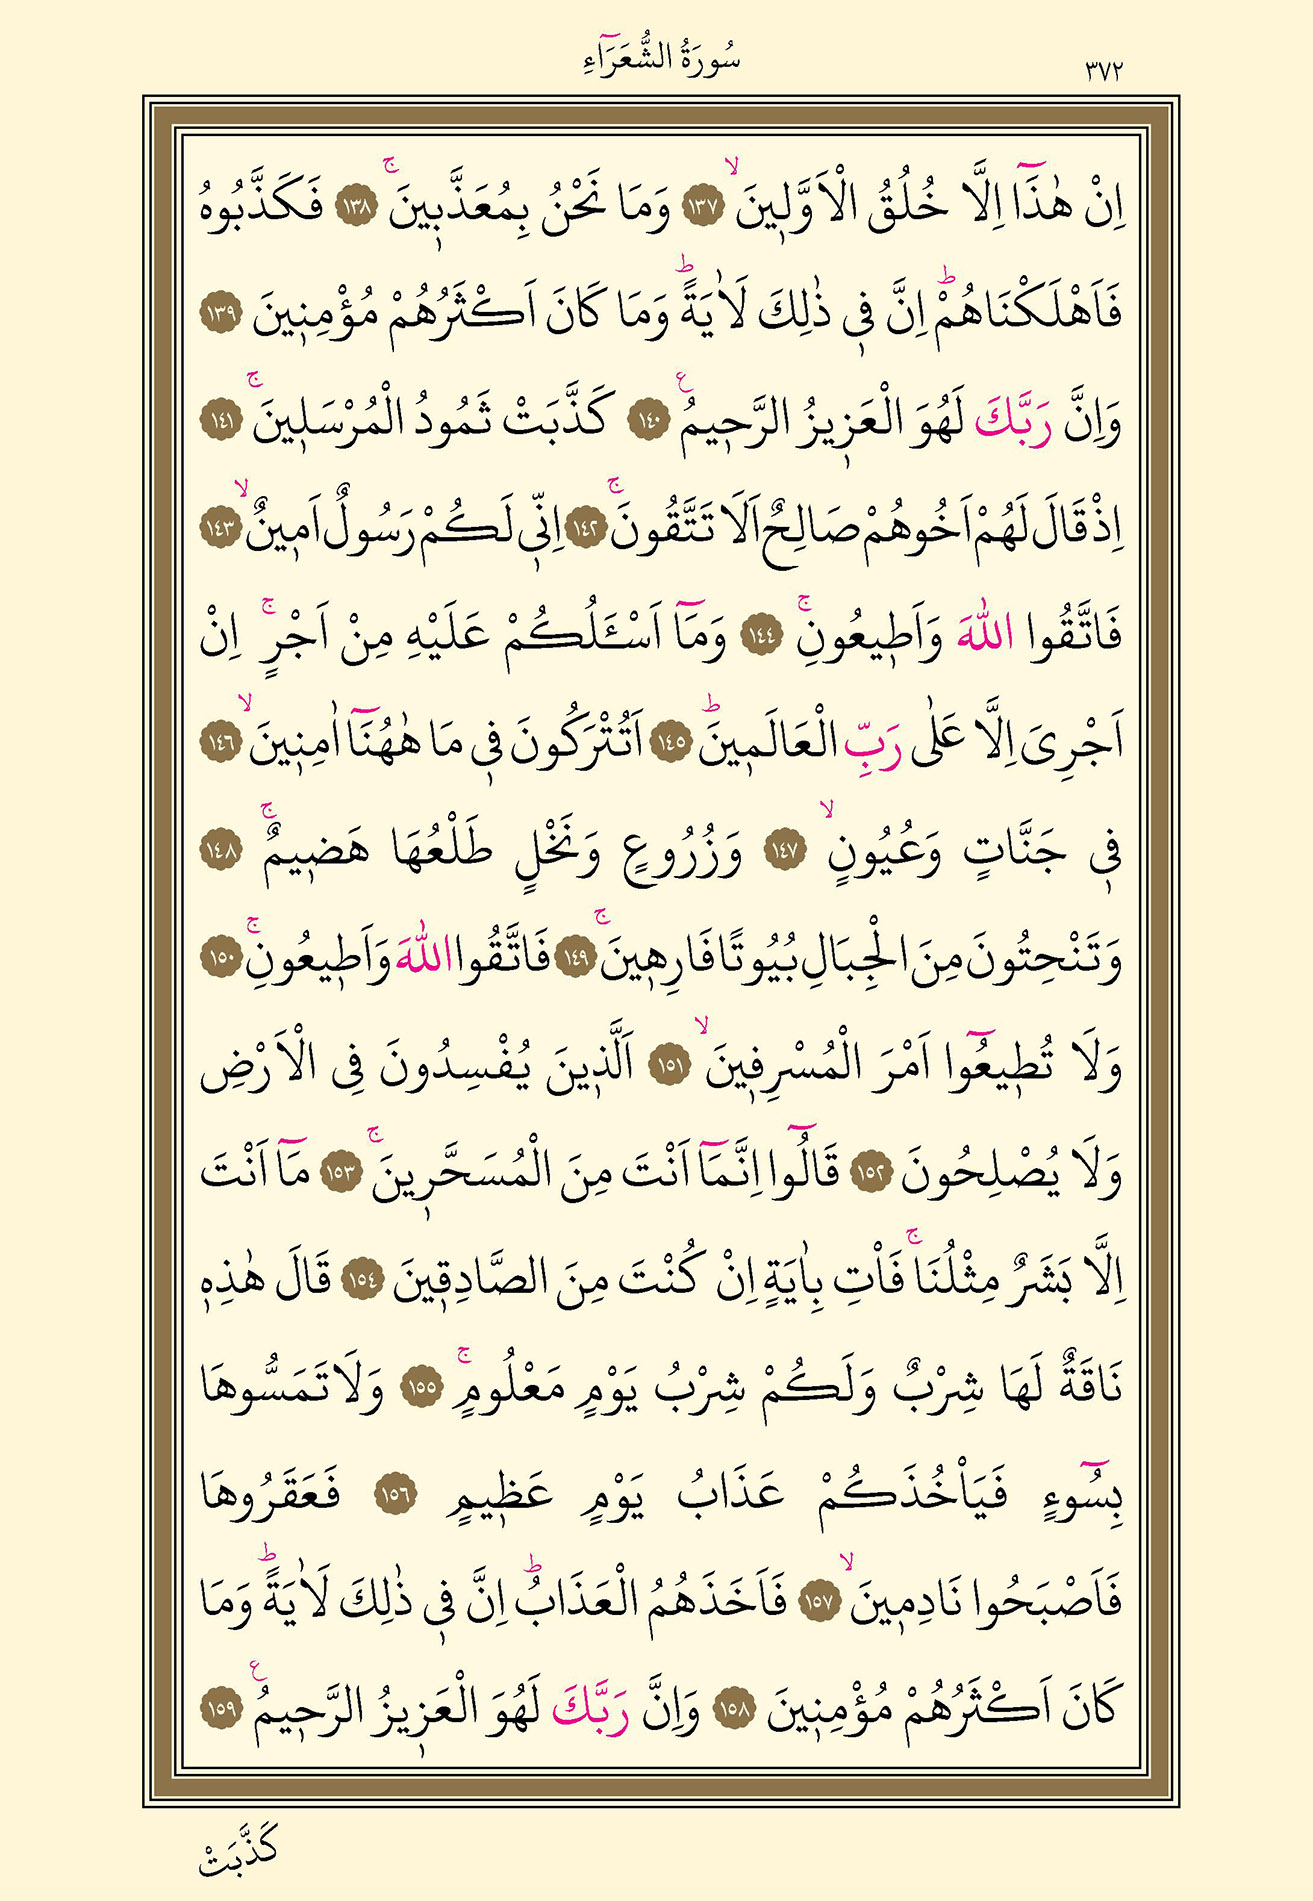 سُورَةُ الشُّعَرَٓاءِ ٣٧٢
اِنْ هٰذَٓا اِلَّا خُلُقُ الْاَوَّل۪ينَۙ ﴿١٣٧﴾ وَمَا نَحْنُ بِمُعَذَّب۪ينَۚ ﴿١٣٨﴾ فَكَذَّبُوهُ
فَاَهْلَكْنَاهُمْۜ اِنَّ ف۪ي ذٰلِكَ لَاٰيَةًۜ وَمَا كَانَ اَكْثَرُهُمْ مُؤْمِن۪ينَ ﴿١٣٩﴾
وَاِنَّ رَبَّكَ لَهُوَ الْعَز۪يزُ الرَّح۪يمُ ع ﴿١٤٠﴾ كَذَّبَتْ ثَمُودُ الْمُرْسَل۪ينَۚ ﴿١٤١﴾
اِذْ قَالَ لَهُمْ اَخُوهُمْ صَالِحٌ اَلَا تَتَّقُونَۚ ﴿١٤٢﴾ اِنّ۪ي لَكُمْ رَسُولٌ اَم۪ينٌۙ ﴿١٤٣﴾
فَاتَّقُوا اللّٰهَ وَاَط۪يعُونِۚ ﴿١٤٤﴾ وَمَٓا اَسْـَٔلُكُمْ عَلَيْهِ مِنْ اَجْرٍۚ اِنْ
اَجْرِىَ اِلَّا عَلٰى رَبِّ الْعَالَم۪ينَۜ ﴿١٤٥﴾ اَتُتْرَكُونَ ف۪ي مَا هٰهُنَٓا اٰمِن۪ينَۙ ﴿١٤٦﴾
ف۪ي جَنَّاتٍ وَعُيُونٍۙ ﴿١٤٧﴾ وَزُرُوعٍ وَنَخْلٍ طَلْعُهَا هَض۪يمٌۚ ﴿١٤٨﴾
وَتَنْحِتُونَ مِنَ الْجِبَالِ بُيُوتًا فَارِه۪ينَۚ ﴿١٤٩﴾ فَاتَّقُوا اللّٰهَ وَاَط۪يعُونِۚ ﴿١٥٠﴾
وَلَا تُط۪يعُٓوا اَمْرَ الْمُسْرِف۪ينَۙ ﴿١٥١﴾ اَلَّذ۪ينَ يُفْسِدُونَ فِى الْاَرْضِ
وَلَا يُصْلِحُونَ ﴿١٥٢﴾ قَالُٓوا اِنَّمَٓا اَنْتَ مِنَ الْمُسَحَّر۪ينَۚ ﴿١٥٣﴾ مَٓا اَنْتَ
اِلَّا بَشَرٌ مِثْلُنَاۚ فَاْتِ بِاٰيَةٍ اِنْ كُنْتَ مِنَ الصَّادِق۪ينَ ﴿١٥٤﴾ قَالَ هٰذِه۪
نَاقَةٌ لَهَا شِرْبٌ وَلَكُمْ شِرْبُ يَوْمٍ مَعْلُومٍۚ ﴿١٥٥﴾ وَلَا تَمَسُّوهَا
بِسُٓوءٍ فَيَاْخُذَكُمْ عَذَابُ يَوْمٍ عَظ۪يمٍ ﴿١٥٦﴾ فَعَقَرُوهَا
فَاَصْبَحُوا نَادِم۪ينَۙ ﴿١٥٧﴾ فَاَخَذَهُمُ الْعَذَابُۜ اِنَّ ف۪ي ذٰلِكَ لَاٰيَةًۜ وَمَا
كَانَ اَكْثَرُهُمْ مُؤْمِن۪ينَ ﴿١٥٨﴾ وَاِنَّ رَبَّكَ لَهُوَ الْعَز۪يزُ الرَّح۪يمُ ع ﴿١٥٩﴾
كَذَّبَتْ